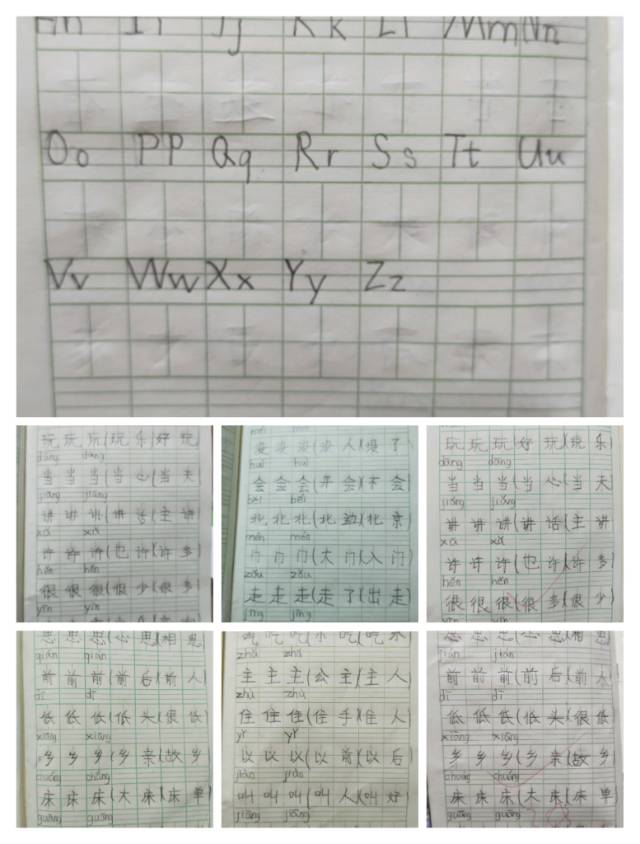 Oo Pp Qq Rr Ss Tt Uu
Vv Ww Xx Yy Zz
玩 玩 玩(玩 乐)(好 玩
dāng dāng
当 当 当(当 心)(当 天
jiǎng jiǎng
讲 讲 讲(讲 话)(主 讲
xǔ xǔ
许 许 许(也 许)(许 多
hěn hěn
很 很 很(很 少)(很 多
没 没 没(没 人)(没 了
huì huì
会 会 会(开 会)(不 会
běi běi
北 北 北(北 边)(北 京
mén mén
门 门 门(大 门)(入 门
zǒu zǒu
走 走 走(走 了)(出 走
jìng jìng
玩 玩 玩(好 玩)(玩 乐
dāng dāng
当 当 当(当 心)(当 天
jiǎng jiǎng
讲 讲 讲(讲 话)(主 讲
xǔ xǔ
许 许 许(也 许)(许 多
hěn hěn
很 很 很(很 多)(很 少)
思 思 思(心 思)(相 思
qián qián
前 前 前(前 后)(前 人
dī dī
低 低 低(低 头)(很 低
xiāng xiāng
乡 乡 乡(乡 亲)(故 乡
chuáng chuáng
床 床 床(大 床)(床 单
guāng guāng
zhǔ zhǔ
主 主 主(公 主)(主 人
zhù zhù
住 住 住(住 手)(住 人
yǐ yǐ
以 以 以(以 前)(以 后
jiào jiào
叫 叫 叫(叫 人)(叫 好
jiāng jiāng
前 前 前(前 后)(前 人
dī dī
低 低 低(低 头)(很 低
xiāng xiāng
乡 乡 乡(乡 亲)(故 乡
chuáng chuáng
床 床 床(大 床)(床 单
guāng guāng